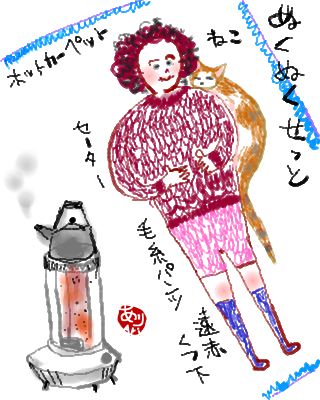 ぬくぬくせっと
ねこ
ホットカーペット
セーター
毛糸パンツ
遠赤
くつ下